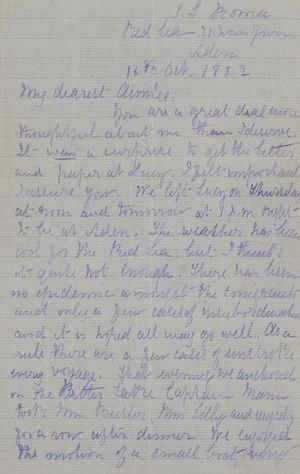 S.S. Roma
Red Sea 21 hours from
Aden
16th Oct. 1882
My dearest Auntie,
You are a great deal more
thoughtful about me than I deserve.
It was a surprise to get the letter
and paper at Suez. I felt important
I assure you. We left Suez on Thursday
at noon and tomorrow at 1 p.m. ought
to be at Aden. The weather has been
cool for the Red Sea, but I thought
it quite hot enough. There has been
no epidemic amongst the emigrants
and only a few cases of insubordination
and it is hoped all may go well. As a
rule there are a few cases of sunstroke
every voyage. That evening we anchored
in the Bitter Lake Captain Mann
took Mrs Butler Mrs Lilly and myself
for a row after dinner. We enjoyed
the motion of a small boat very